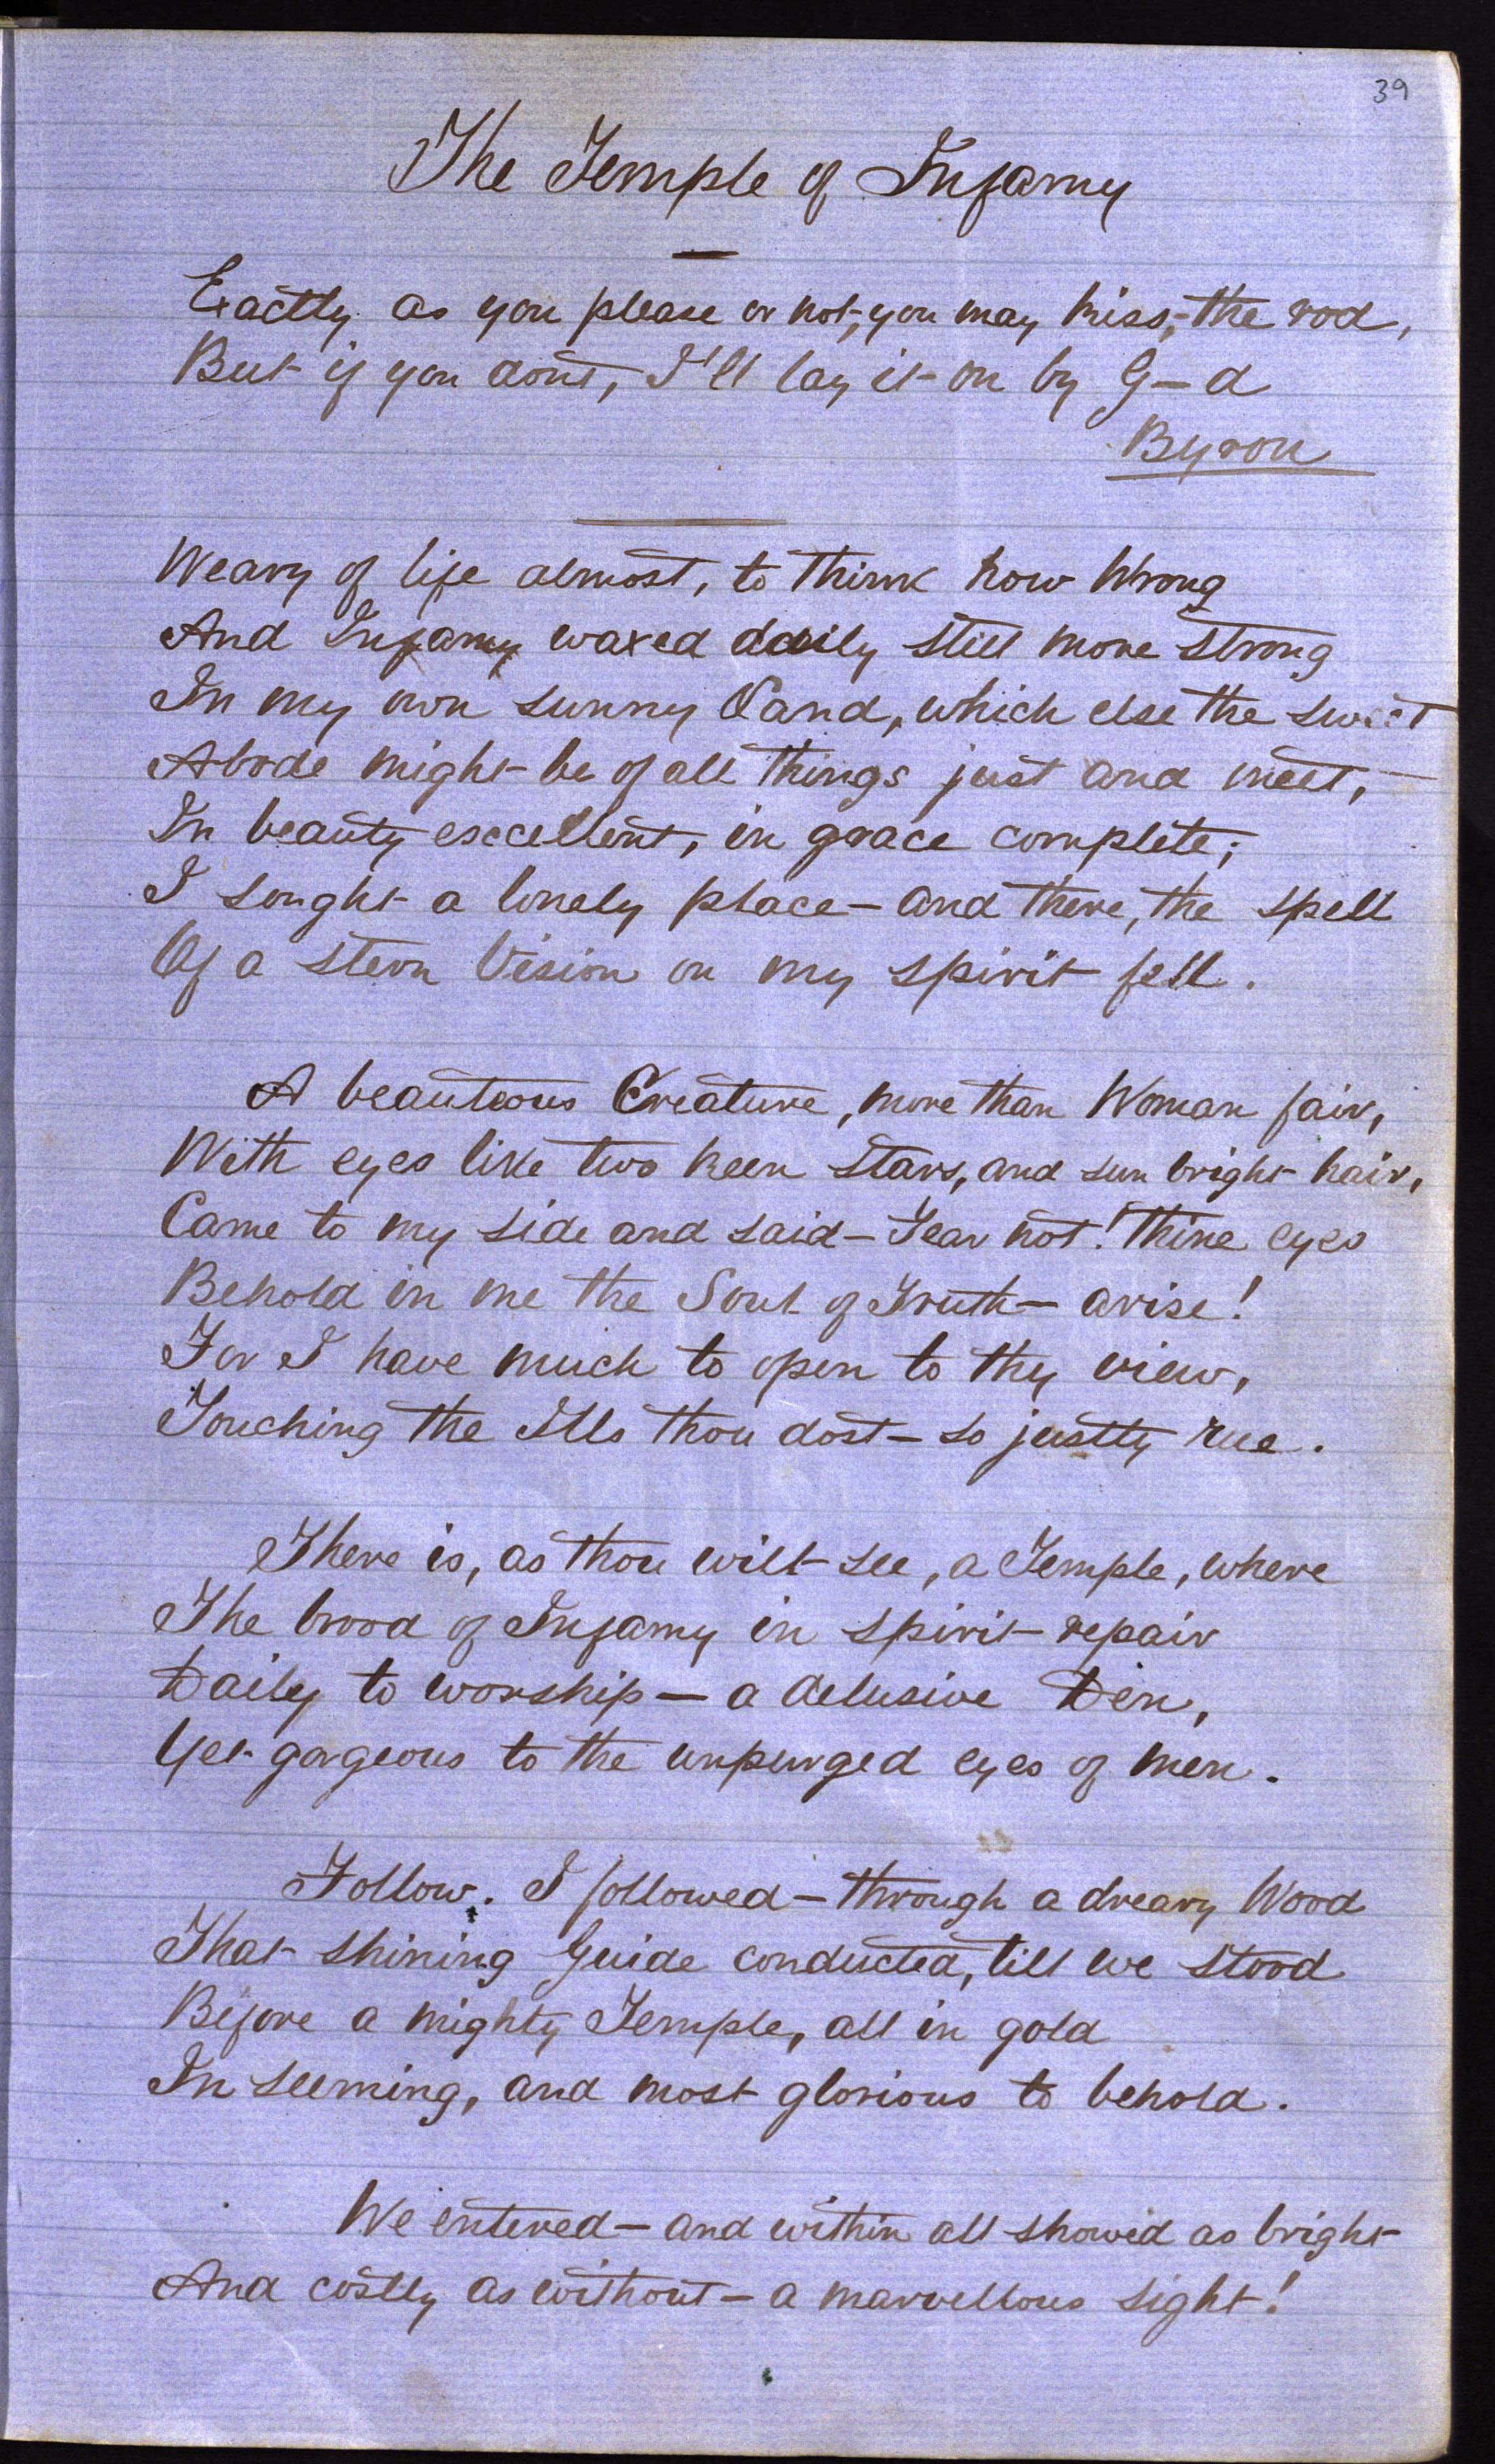 39
The Temple of Infamy
Exactly as you please or not, you may kiss, the rod,
But if you dont, I'll lay it on by G—d
Byron
Weary of life almost, to think how Wrong
And Infamy waxed daily still more strong
In my own sunny Land, which else the sweet
Abode might be of all things just and meet,
In beauty excellent, in grace complete;
I sought a lonely place — and there, the spell
Of a stern Vision on my spirit fell.
A beauteous Creature, more than Woman fair,
With eyes like two keen stars, and sun bright hair,
Came to my side and said — Fear not! thine eyes
Behold in me the Soul of Truth — arise!
For I have much to open to thy view,
Touching the Ills thou dost — so justly rue.
There is, as thou wilt see, a Temple, where
The brood of Infamy in spirit repair
Daily to worship — a delusive Den,
Yet gorgeous to the unpurged eyes of men.
Follow. I followed — through a dreary Wood
That shining Guide conducted, till we stood
Before a mighty Temple, all in gold
In seeming, and most glorious to behold.
We entered — and within all showed as bright
And costly as without — a marvellous sight!